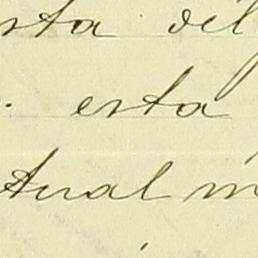 sta del
esta
tual m